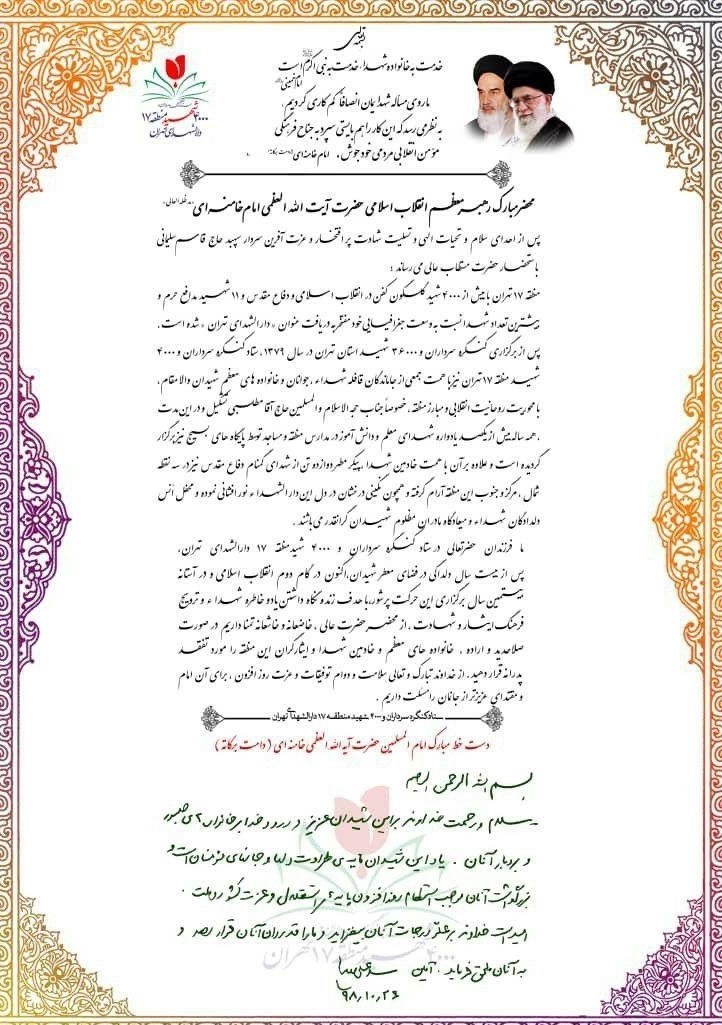 خدمت به خانواده شهدا، خدمت به نبی اکرم است
امام خمینی
ما روی مساله شهدایمان انصافا کم کاری کردیم.
به نظر می رسد که این کار را هم بایستی سپرد به جناح فرهنگی
مؤمن انقلابی مردمی خودجوش. امام خامنه ای (دامت برکاته)
۴۰۰۰ شهید منطقه ۱۷
دارالشهدای تهران
محضر مبارک رهبر معظم انقلاب اسلامی حضرت آیت الله العظمی امام خامنه ای مد ظله العالی
پس از اهدای سلام و تحیات الهی و تسلیت شهادت پر افتخار و عزت آفرین سردار سپهبد حاج قاسم سلیمانی
باستحضار حضرت مستطاب عالی می رساند :
منطقه ۱۷ تهران با بیش از ۴۰۰۰ شهید گلگون کفن در انقلاب اسلامی و دفاع مقدس و ۱۱ شهید مدافع حرم و
بیشترین تعداد شهدا نسبت به وسعت جغرافیایی خود مفتخر به دریافت عنوان «دارالشهدای تهران» شده است.
پس از برگزاری کنگره سرداران و ۳۶۰۰۰ شهید استان تهران در سال ۱۳۷۹، ستاد کنگره سرداران و ۴۰۰۰
شهید منطقه ۱۷ تهران نیز با همت جمعی از جاماندگان قافله شهداء، جوانان و خانواده های معظم شهیدان والامقام،
با محوریت روحانیت انقلابی و مبارز منطقه، خصوصاً جناب حجه الاسلام والمسلمین حاج آقا مطلبی تشکیل و در این مدت
، همه ساله بیش از یکصد یادواره شهدای معلم و دانش آموز در مدارس منطقه و مساجد توسط پایگاه های بسیج نیز برگزار
گردیده است و علاوه بر آن با همت خادمین شهدا، پیکر مطهر دوازده تن از شهدای گمنام دفاع مقدس نیز در سه نقطه
شمال، مرکز و جنوب این منطقه آرام گرفته و همچون نگینی درخشان در دل این دارالشهداء نور افشانی نموده و محفل انس
دلدادگان شهداء و میعادگاه مادران مظلوم شهیدان گرانقدر می باشند .
ما فرزندان حضرتعالی در ستاد کنگره سرداران و ۴۰۰۰ شهید منطقه ۱۷ دارالشهدای تهران،
پس از بیست سال دلدادگی در فضای معطر شهیدان، اکنون در گام دوم انقلاب اسلامی و در آستانه
بیستمین سال برگزاری این حرکت پرشور، با هدف زنده نگاه داشتن یاد و خاطره شهداء و ترویج
فرهنگ ایثار و شهادت، از محضر حضرت عالی، خاضعانه و خاشعانه تمنا داریم در صورت
صلاحدید و اراده، خانواده های معظم و خادمین شهدا و ایثارگران این منطقه را مورد تفقد
پدرانه قرار دهید. از خداوند تبارک و تعالی سلامت و دوام توفیقات و عزت روز افزون، برای آن امام
و مقتدای عزیزتر از جانمان را مسئلت داریم .
ستاد کنگره سرداران و ۴۰۰۰ شهید منطقه ۱۷ دارالشهدای تهران
دست خط مبارک امام المسلمین حضرت آیه الله العظمی خامنه ای (دامت برکاته)
بسم الله الرحمن الرحیم
سلام و رحمت خداوند بر این شهیدان عزیز و درود خدا بر خانواده‌ های صبور
و بردبار آنان . یاد این شهیدان مایه ی طراوت دلها و جانهای مؤمنان است و
بزرگداشت آنان موجب استحکام روزافزون پایه های استقلال و عزت کشور و ملت .
امید است خداوند بر علوّ درجات آنان بیفزاید و ما را قدردان آنان قرار دهد و
به آنان ملحق فرماید . آمین سید علی خامنه‌ای
۹۸,۱۰,۲۶
۴۰۰۰ شهید منطقه ۱۷ تهران